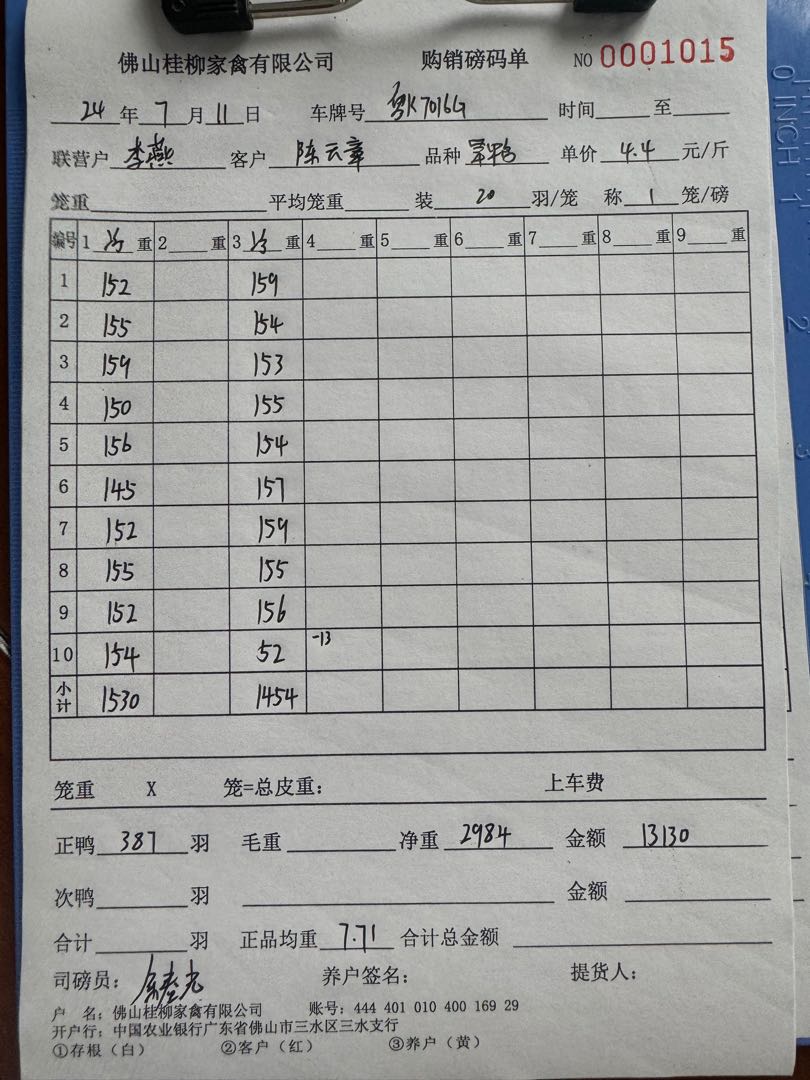 佛山桂柳家禽有限公司 购销磅码单 NO 0001015
24 年 7 月 11 日 车牌号 粤K7016G 时间 至
联营户 李燕 客户 陈云章 品种 单价 4.4 元/斤
笼重 平均笼重 装 20 羽/笼 称 1 笼/磅
编号 1 重 2 重 3 重 4 重 5 重 6 重 7 重 8 重 9 重
1 152 159
2 155 154
3 159 153
4 150 155
5 156 154
6 145 157
7 152 159
8 155 155
9 152 156
10 154 52 -13
小计 1530 1454
笼重 X 笼=总皮重: 上车费
正鸭 387 羽 毛重 净重 2984 金额 13130
次鸭 羽 金额
合计 羽 正品均重 7.71 合计总金额
司磅员: 养户签名: 提货人:
户 名: 佛山桂柳家禽有限公司 账号: 444 401 010 400 169 29
开户行: 中国农业银行广东省佛山市三水区三水支行
①存根(白) ②客户(红) ③养户(黄)
0 INCH 1
2
3